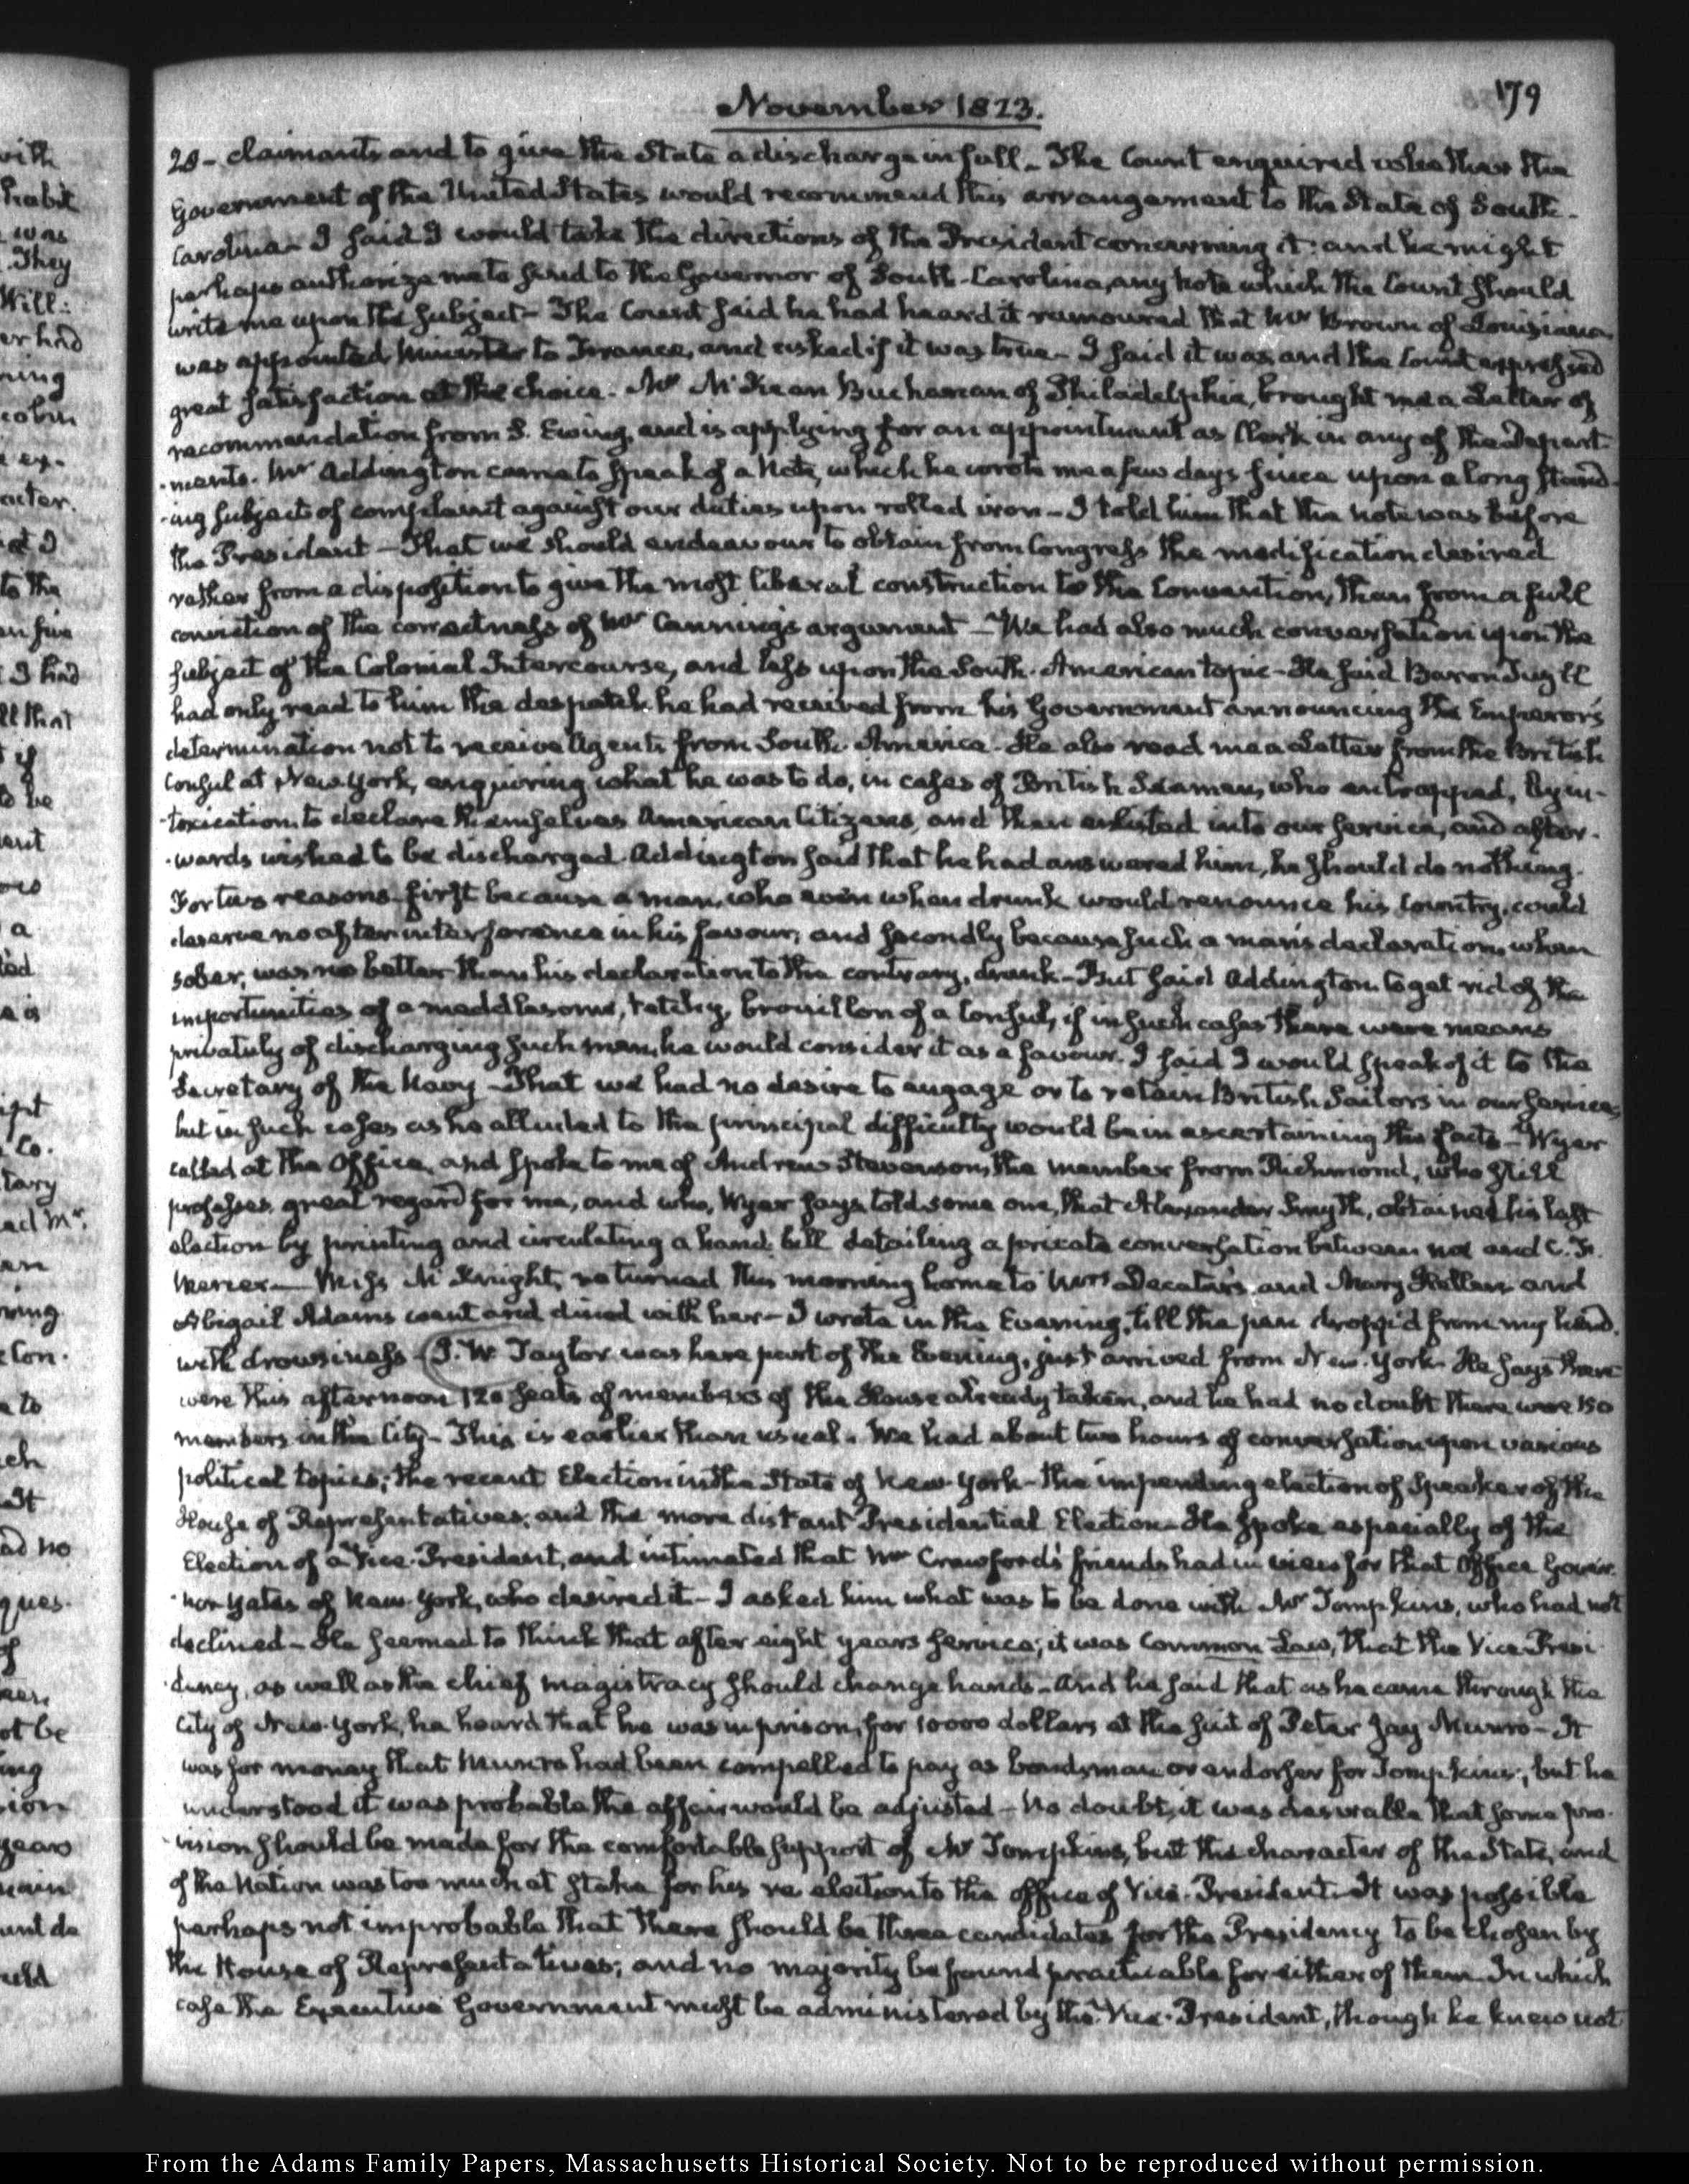 November 1823.
179
28 - claimants and to give the State a discharge in full - The Count enquired whether the
Government of the United States would recommend this arrangement to the State of South-
Carolina - I said I would take the directions of the President concerning it: and he might
perhaps authorize me to send to the Governor of South-Carolina, any note which the Count should
write me upon the subject - The Count said he had heard it rumoured that Mr Brown of Louisiana
was appointed Minister to France, and asked if it was true - I said it was, and the Count expressed
great satisfaction at the choice. Mr McKean Buchanan of Philadelphia, brought me a Letter of
recommendation from S. Ewing, and is applying for an appointment as Clerk in any of the Depart-
-ments. Mr Addington came to speak of a Note, which he wrote me a few days since upon a long stand-
-ing subject of complaint against our duties upon rolled iron - I told him that the note was before
the President - That we should endeavour to obtain from Congress the modification desired
rather from a disposition to give the most liberal construction to the Convention, than from a full
conviction of the correctness of Mr Canning's argument - We had also much conversation upon the
subject of the Colonial Intercourse, and less upon the South-American topic - He said Baron Tuyll
had only read to him the despatch he had received from his Government announcing the Emperor's
determination not to receive Agents from South-America. He also read me a Letter from the British
Consul at New-York, enquiring what he was to do, in cases of British Seamen, who entrapped, by in-
-toxication, to declare themselves American Citizens, and then enlisted into our service, and after-
-wards wished to be discharged. Addington said that he had answered him, he should do nothing.
For two reasons. first because a man, who even when drunk would renounce his Country, could
deserve no after interference in his favour; and secondly because such a man's declaration, when
sober, was no better than his declaration to the contrary, drunk - But said Addington to get rid of the
importunities of a meddlesome, tetchy, brouillon of a Consul, if in such cases there were means
privately of discharging such men, he would consider it as a favour. I said I would speak of it to the
Secretary of the Navy - That we had no desire to engage or to retain British Sailors in our service;
but in such cases as he alluded to the principal difficulty would be in ascertaining the facts - Wyer
called at the Office, and spoke to me of Andrew Stevenson, the member from Richmond, who still
professes great regard for me, and who, Wyer says told some one, that Alexander Smyth, obtained his last
election by printing and circulating a hand bill detailing a private conversation between me and C. F.
Mercer - Miss McKnight, returned this morning home to Mrs Decatur's and Mary Hellen and
Abigail Adams went and dined with her - I wrote in the Evening, till the pen dropp'd from my hand,
with drowsiness - J. W. Taylor was here part of the Evening, just arrived from New-York. He says there
were this afternoon 120 seats of members of the House already taken, and he had no doubt there were 150
members in the City - This is earlier than usual. We had about two hours of conversation upon various
political topics; the recent Election in the State of New-York - the impending election of Speaker of the
House of Representatives; and the more distant Presidential Election - He spoke especially of the
Election of a Vice-President, and intimated that Mr Crawford's friends had in view for that Office Gover-
-nor Yates of New-York, who desired it - I asked him what was to be done with Mr Tompkins, who had not
declined - He seemed to think that after eight years service, it was Common Law, that the Vice-Presi-
-dency, as well as the chief magistracy should change hands - And he said that as he came through the
City of New-York, he heard that he was in prison, for 10000 dollars at the suit of Peter Jay Munro - It
was for money that Munro had been compelled to pay as bondsman or endorser for Tompkins; but he
understood it was probable the affair would be adjusted - No doubt, it was desirable that some pro-
-vision should be made for the comfortable support of Mr Tompkins, but the character of the State, and
of the Nation was too much at stake for his re election to the office of Vice-President. It was possible
perhaps not improbable that there should be three candidates for the Presidency to be chosen by
the House of Representatives; and no majority be found practicable for either of them. In which
case the Executive Government must be administered by the Vice-President, though he knew not
From the Adams Family Papers, Massachusetts Historical Society. Not to be reproduced without permission.